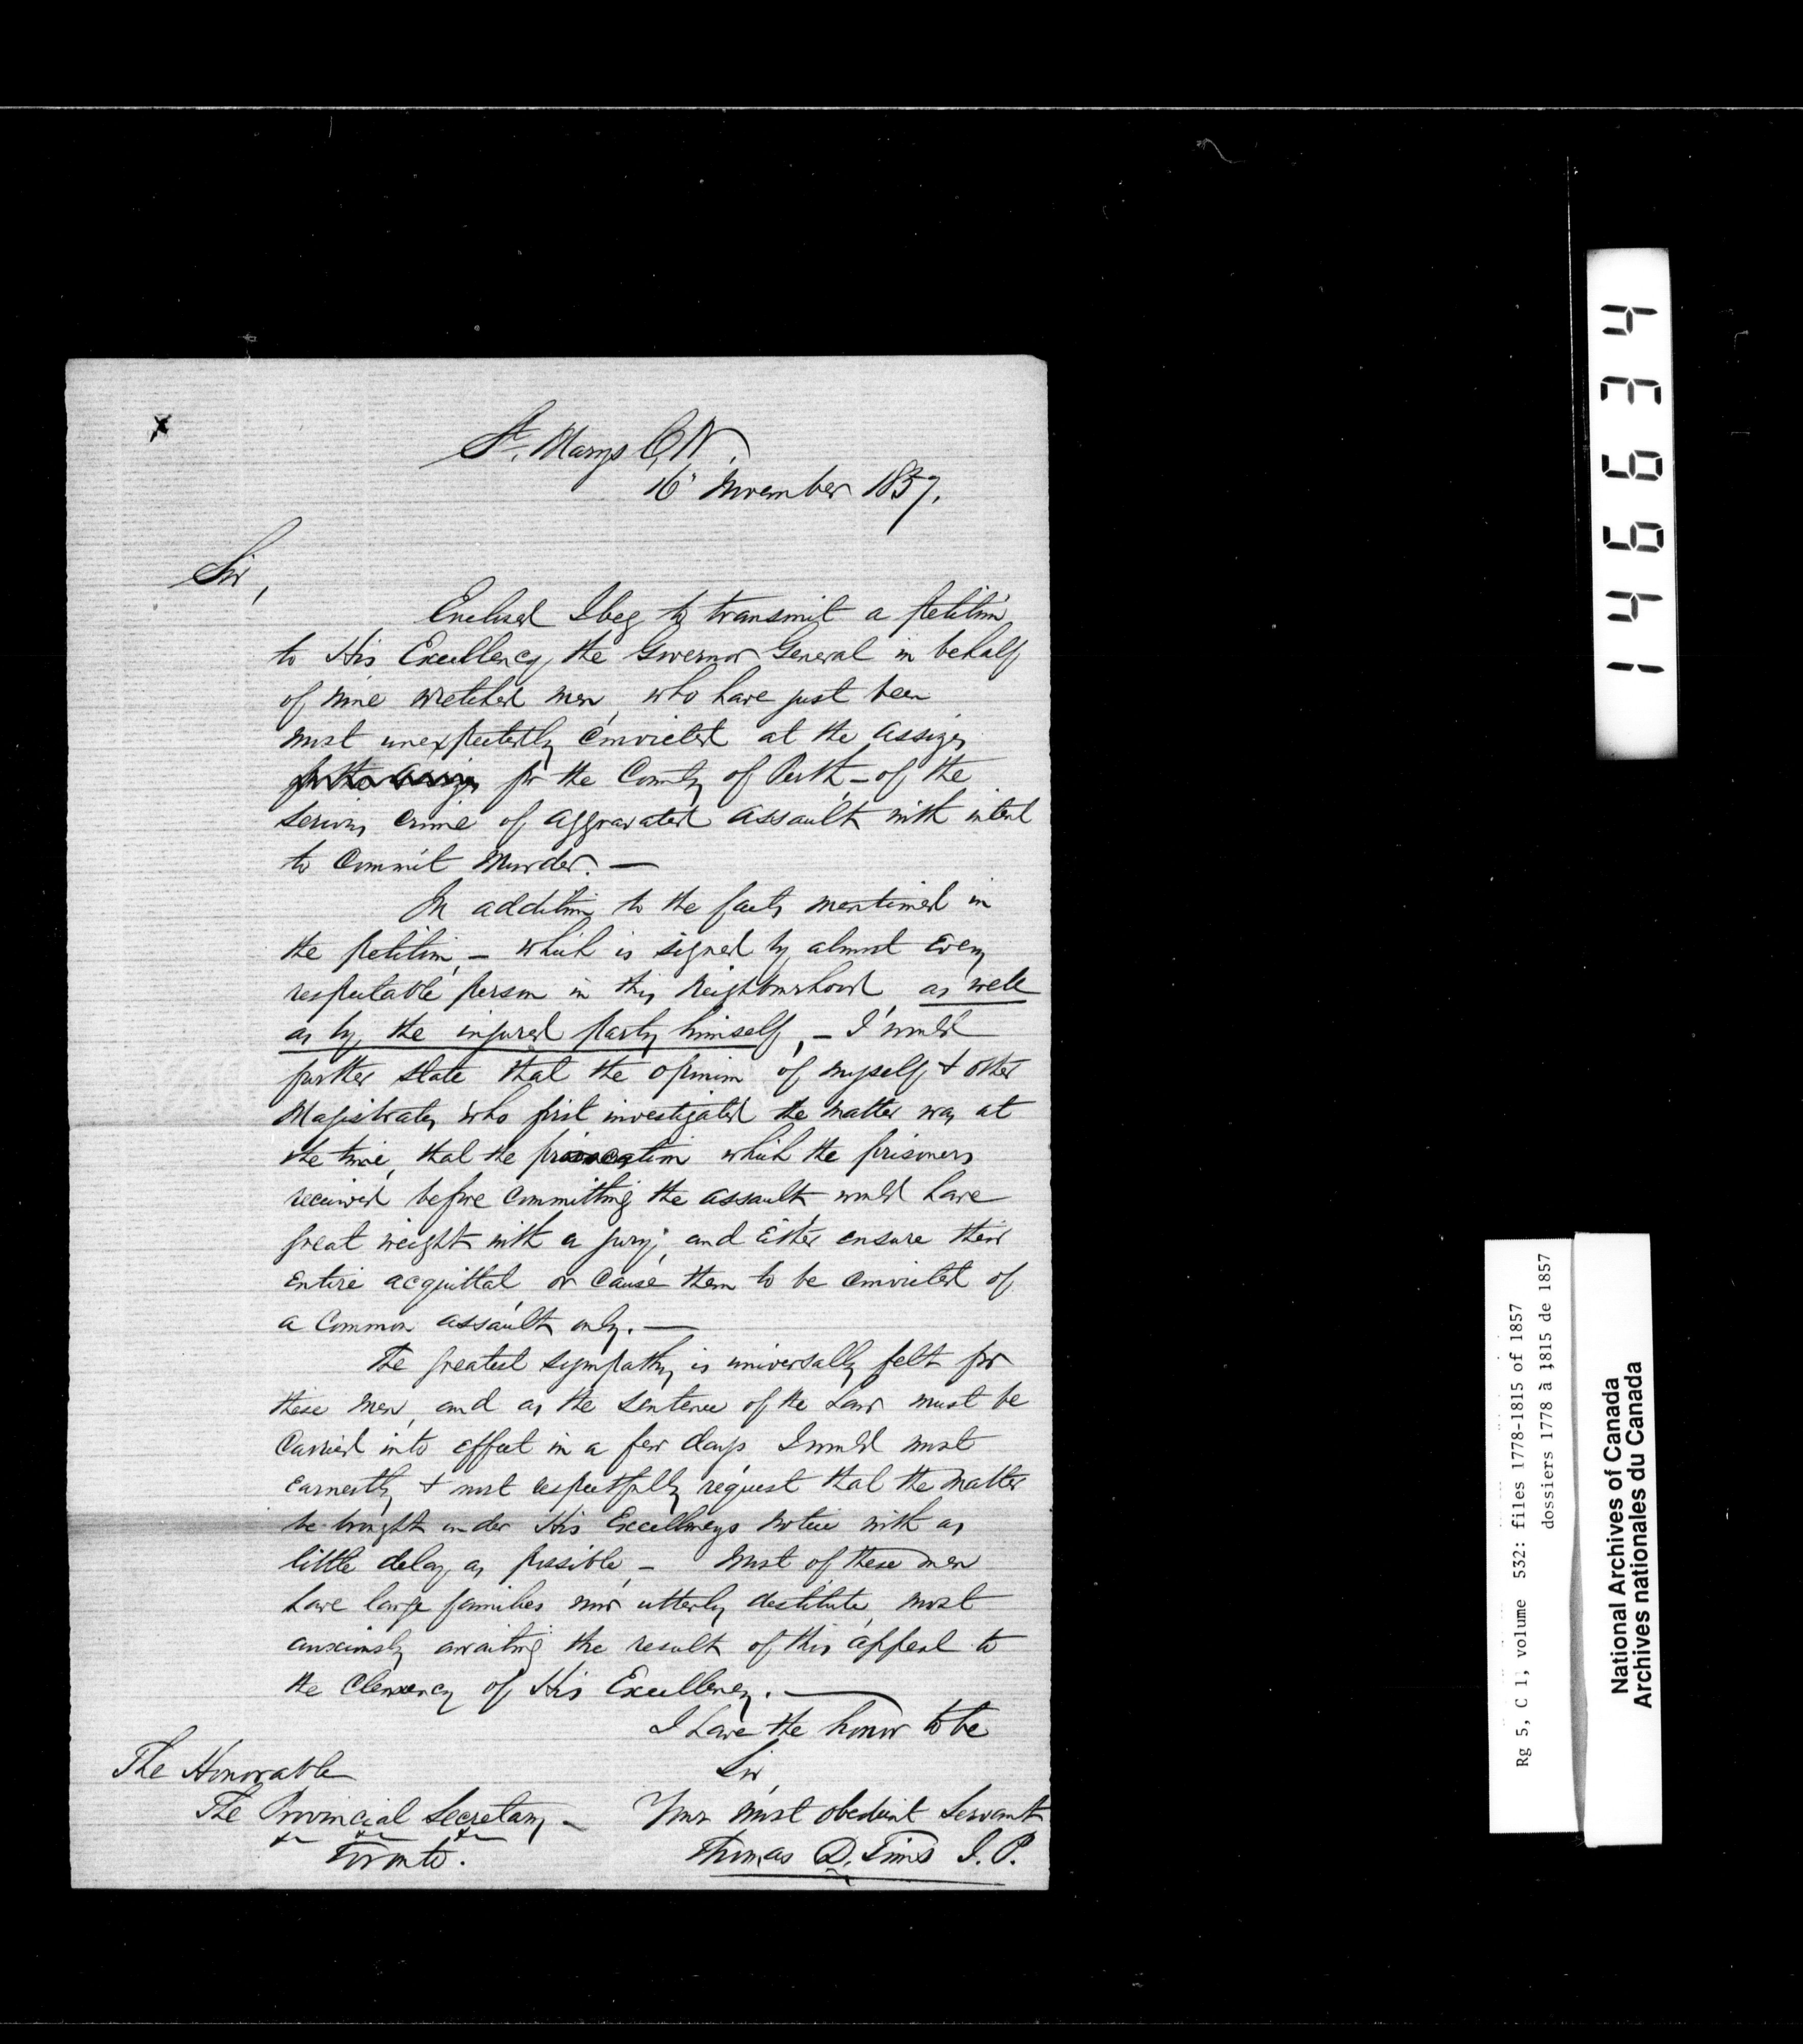 x
St. Marys C,W.
16' November 1857.
Sir,
Enclosed I beg to transmit a petition
to His Excellency the Governor General in behalf
of nine wretched men, who have just been
most unexpectedly convicted at the assizes
for the assizes for the County of Perth – of the
serious crime of aggravated assault with intent
to commit murder. —
In addition to the facts mentioned in
the petition, – which is signed by almost every
respectable person in this neighbourhood, as well
as by the injured party himself, – I would
further state that the opinion of myself & other
Magistrates who first investigated the matter was at
the time, that the provocation which the prisoners
received before committing the assault would have
great weight with a jury, and either ensure their
entire acquittal, or cause them to be convicted of
a common assault only. —
The greatest sympathy is universally felt for
these men, and as the sentence of the Law must be
carried into effect in a few days, I would most
earnestly & most respectfully request that the matter
be brought under His Excellencys notice with as
little delay as possible, – Most of these men
have large families now utterly destitute, most
anxiously awaiting the result of this appeal to
the clemency of His Excellency. —
I have the honor to be
Sir,
Your most obedient Servant
Thomas D. Tims J.P.
The Honorable
The Provincial Secretary –
Toronto.
146634
Rg 5, C 1, volume 532: files 1778-1815 of 1857
dossiers 1778 à 1815 de 1857
National Archives of Canada
Archives nationales du Canada